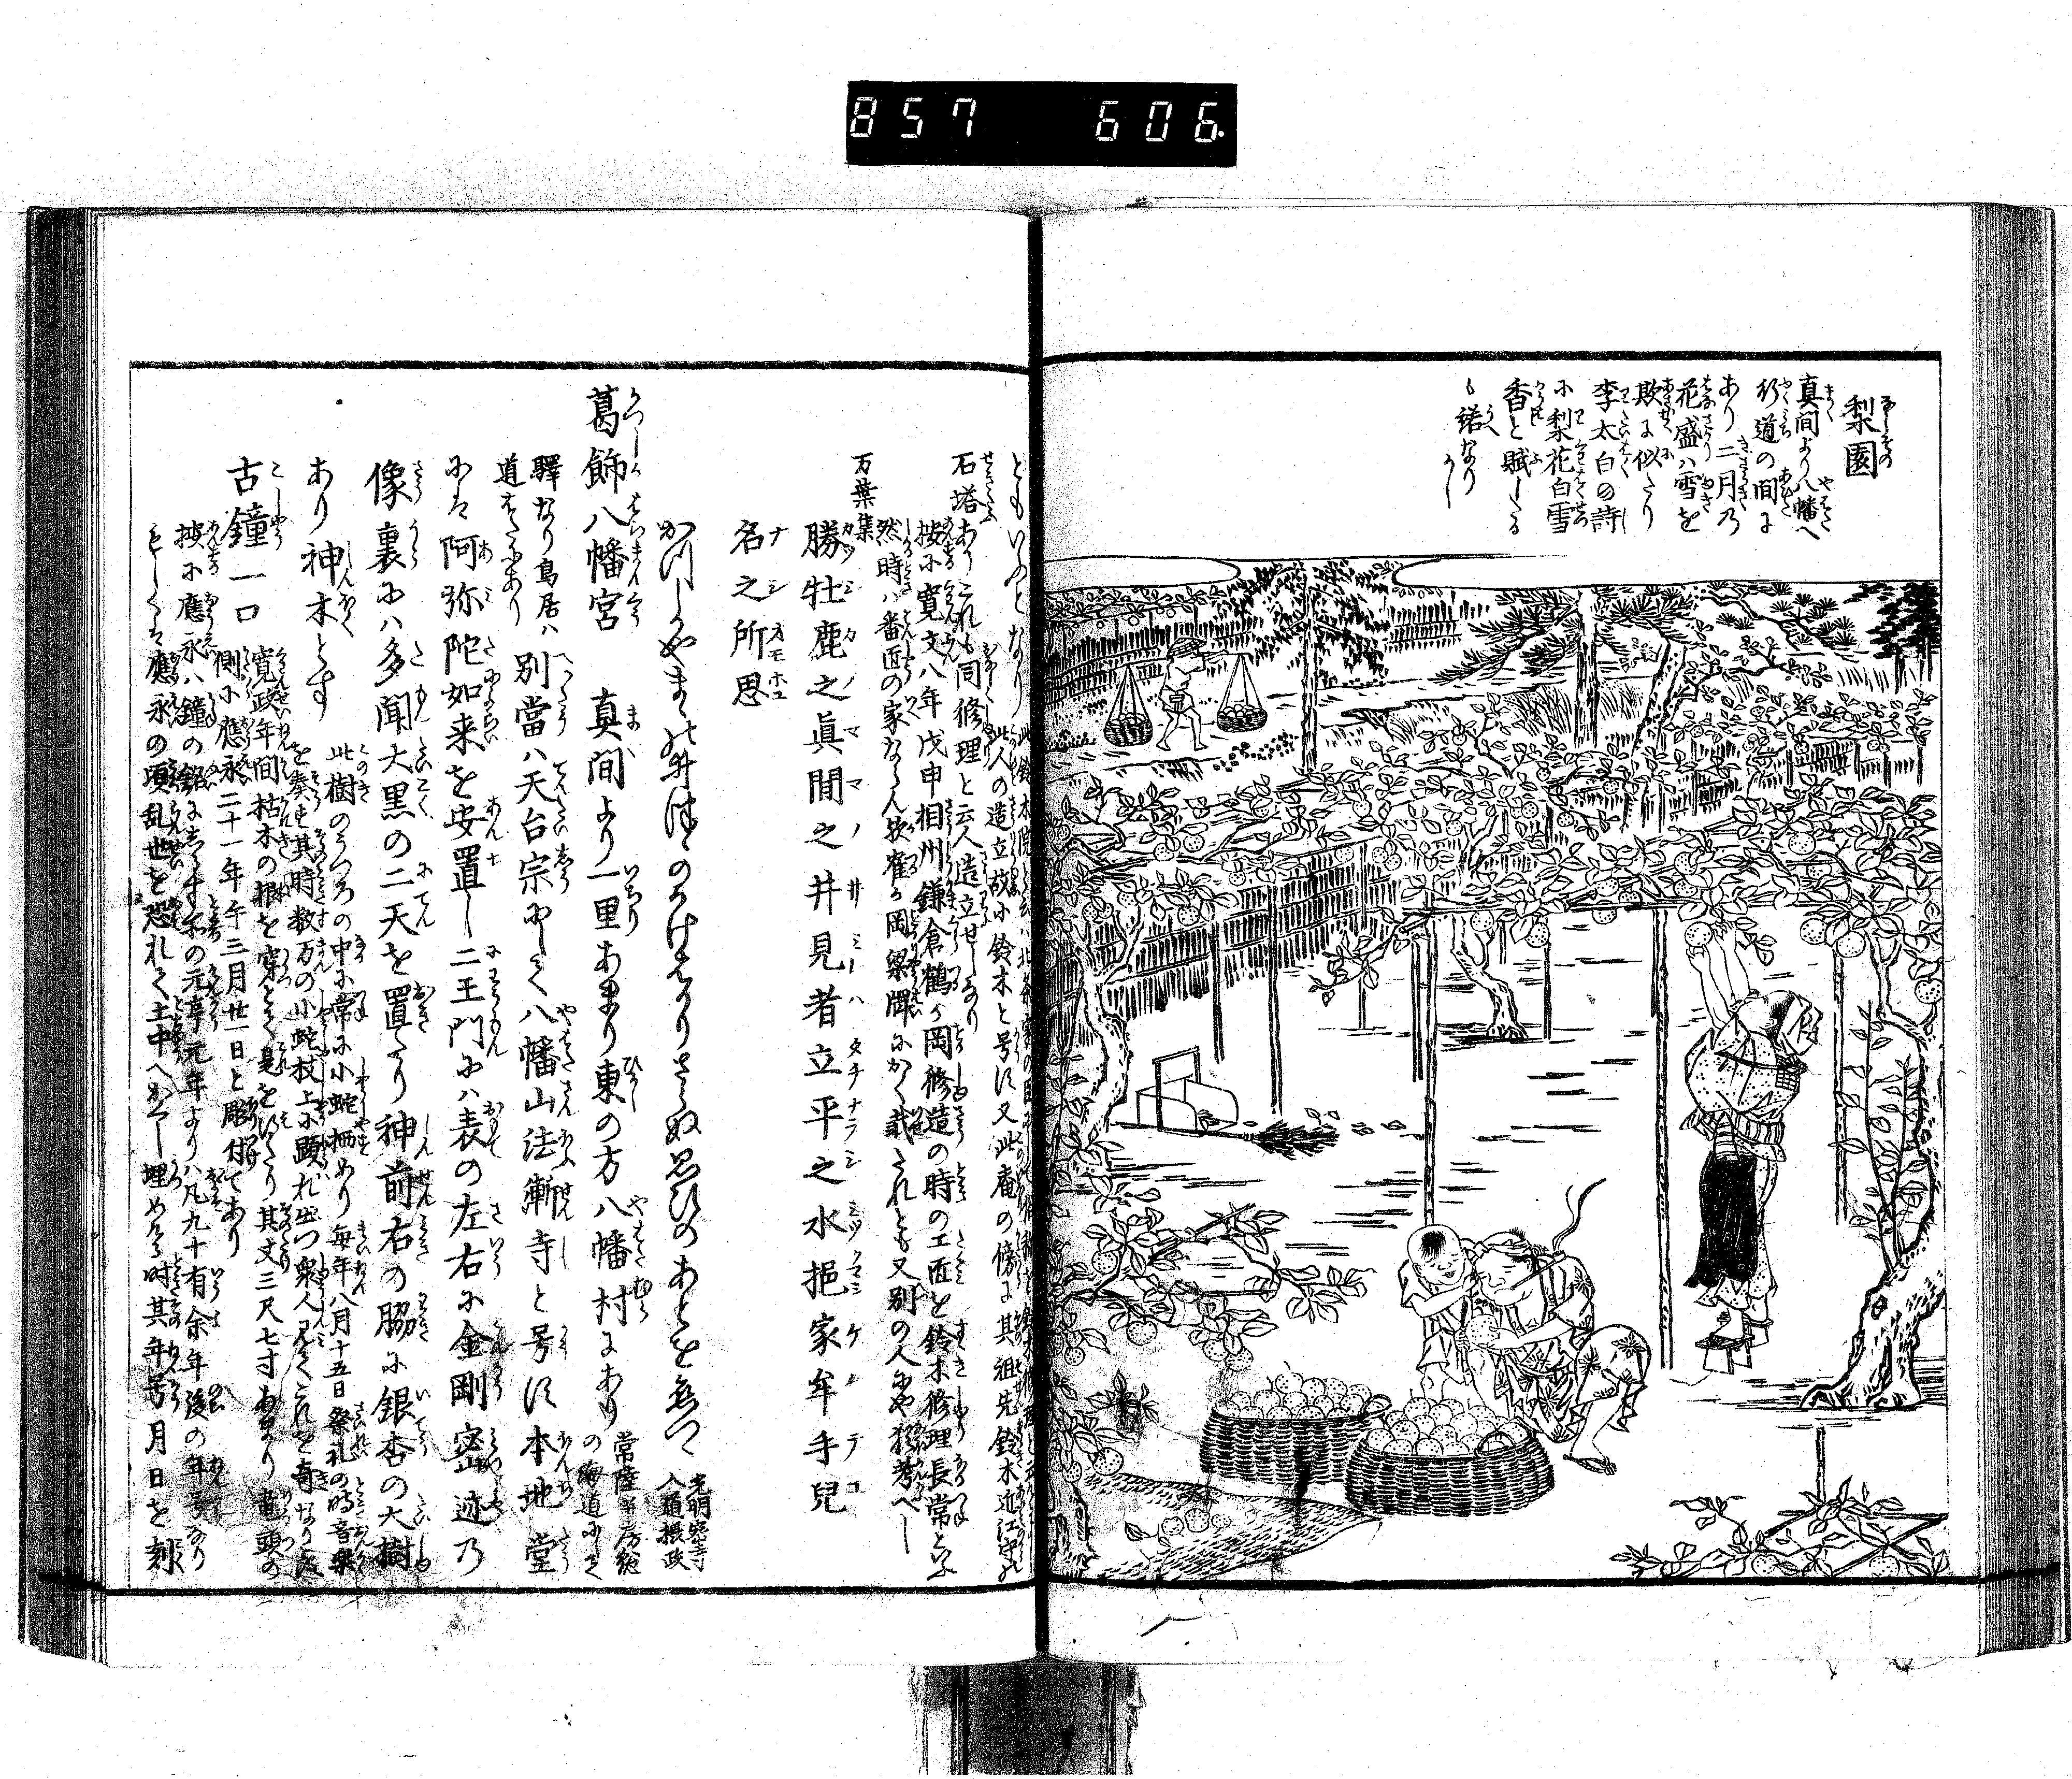 857 606.
梨園
真間より八幡へ
行道の間に
あり二月乃
花盛ハ雪を
欺に似たり
李太白の詩
に梨花白雪
香と賦したる
も諾なり
かし
ともいへりとなり
石塔ありこれも同修理と云人造立せしなり
此人の造立故に鈴木と号す又此庵の傍に其祖先鈴木近江守
按に寛文八年戊申相州鎌倉鶴ケ岡修造の時の工匠を鈴木修理長常といふ
然時ハ番匠の家ならん欤鶴ケ岡梁牌にかく載されとも又別の人にや猶考へし
万葉集
勝牡鹿之眞間之井見者立平之水挹家牟手兒
名之所思
かつしかやまゝの井津のかけはかりさらぬ思ひのあとを無つゝ
光明峯寺
入道摂政
葛飾八幡宮 真間より一里あまり東の方八幡村にあり
常陸并房総
の海道にして
驛なり鳥居ハ
道はたにあり
別當ハ天台宗にして八幡山法漸寺と号す本地堂
にハ阿弥陀如来を安置し二王門にハ表の左右に金剛密迹乃
像裏にハ多聞大黒の二天を置たり神前右の脇に銀杏の大樹
あり神木とす
此樹のうつろの中に常に小蛇栖めり毎年八月十五日祭礼の時音楽
を奏す其時数万の小蛇枝上に顕れ出つ衆人見てこれを奇なりとす
古鐘一口
寛政年間枯木の根を穿とて是をほりたり其丈三尺七寸あまり竜頭の
側に應永二十一年午三月廿一日と彫付てあり
按に應永ハ鐘の銘にしるす所の元亨元年より凡九十有余年後の年号なり
もしくは應永の頃乱世を恐れて土中へかくし埋めたる時其年号月日を刻